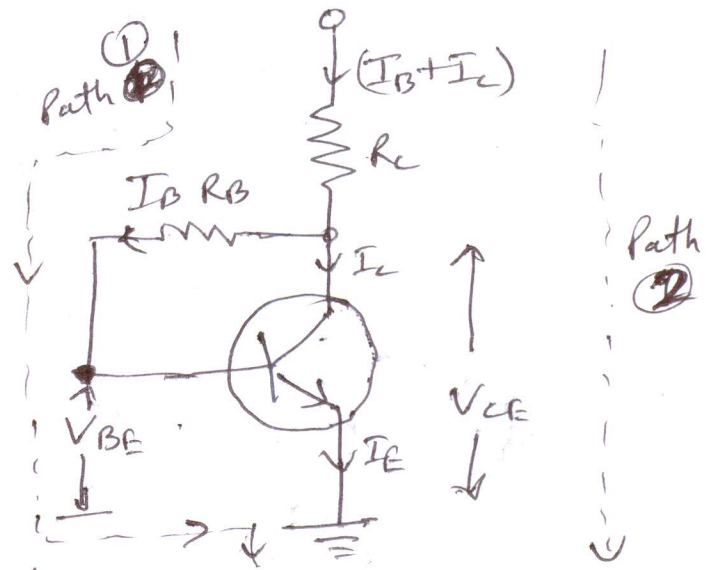 ①
Path
(IB+IC)
RC
IB RB
IC
Path
②
VCE
VBE
IE